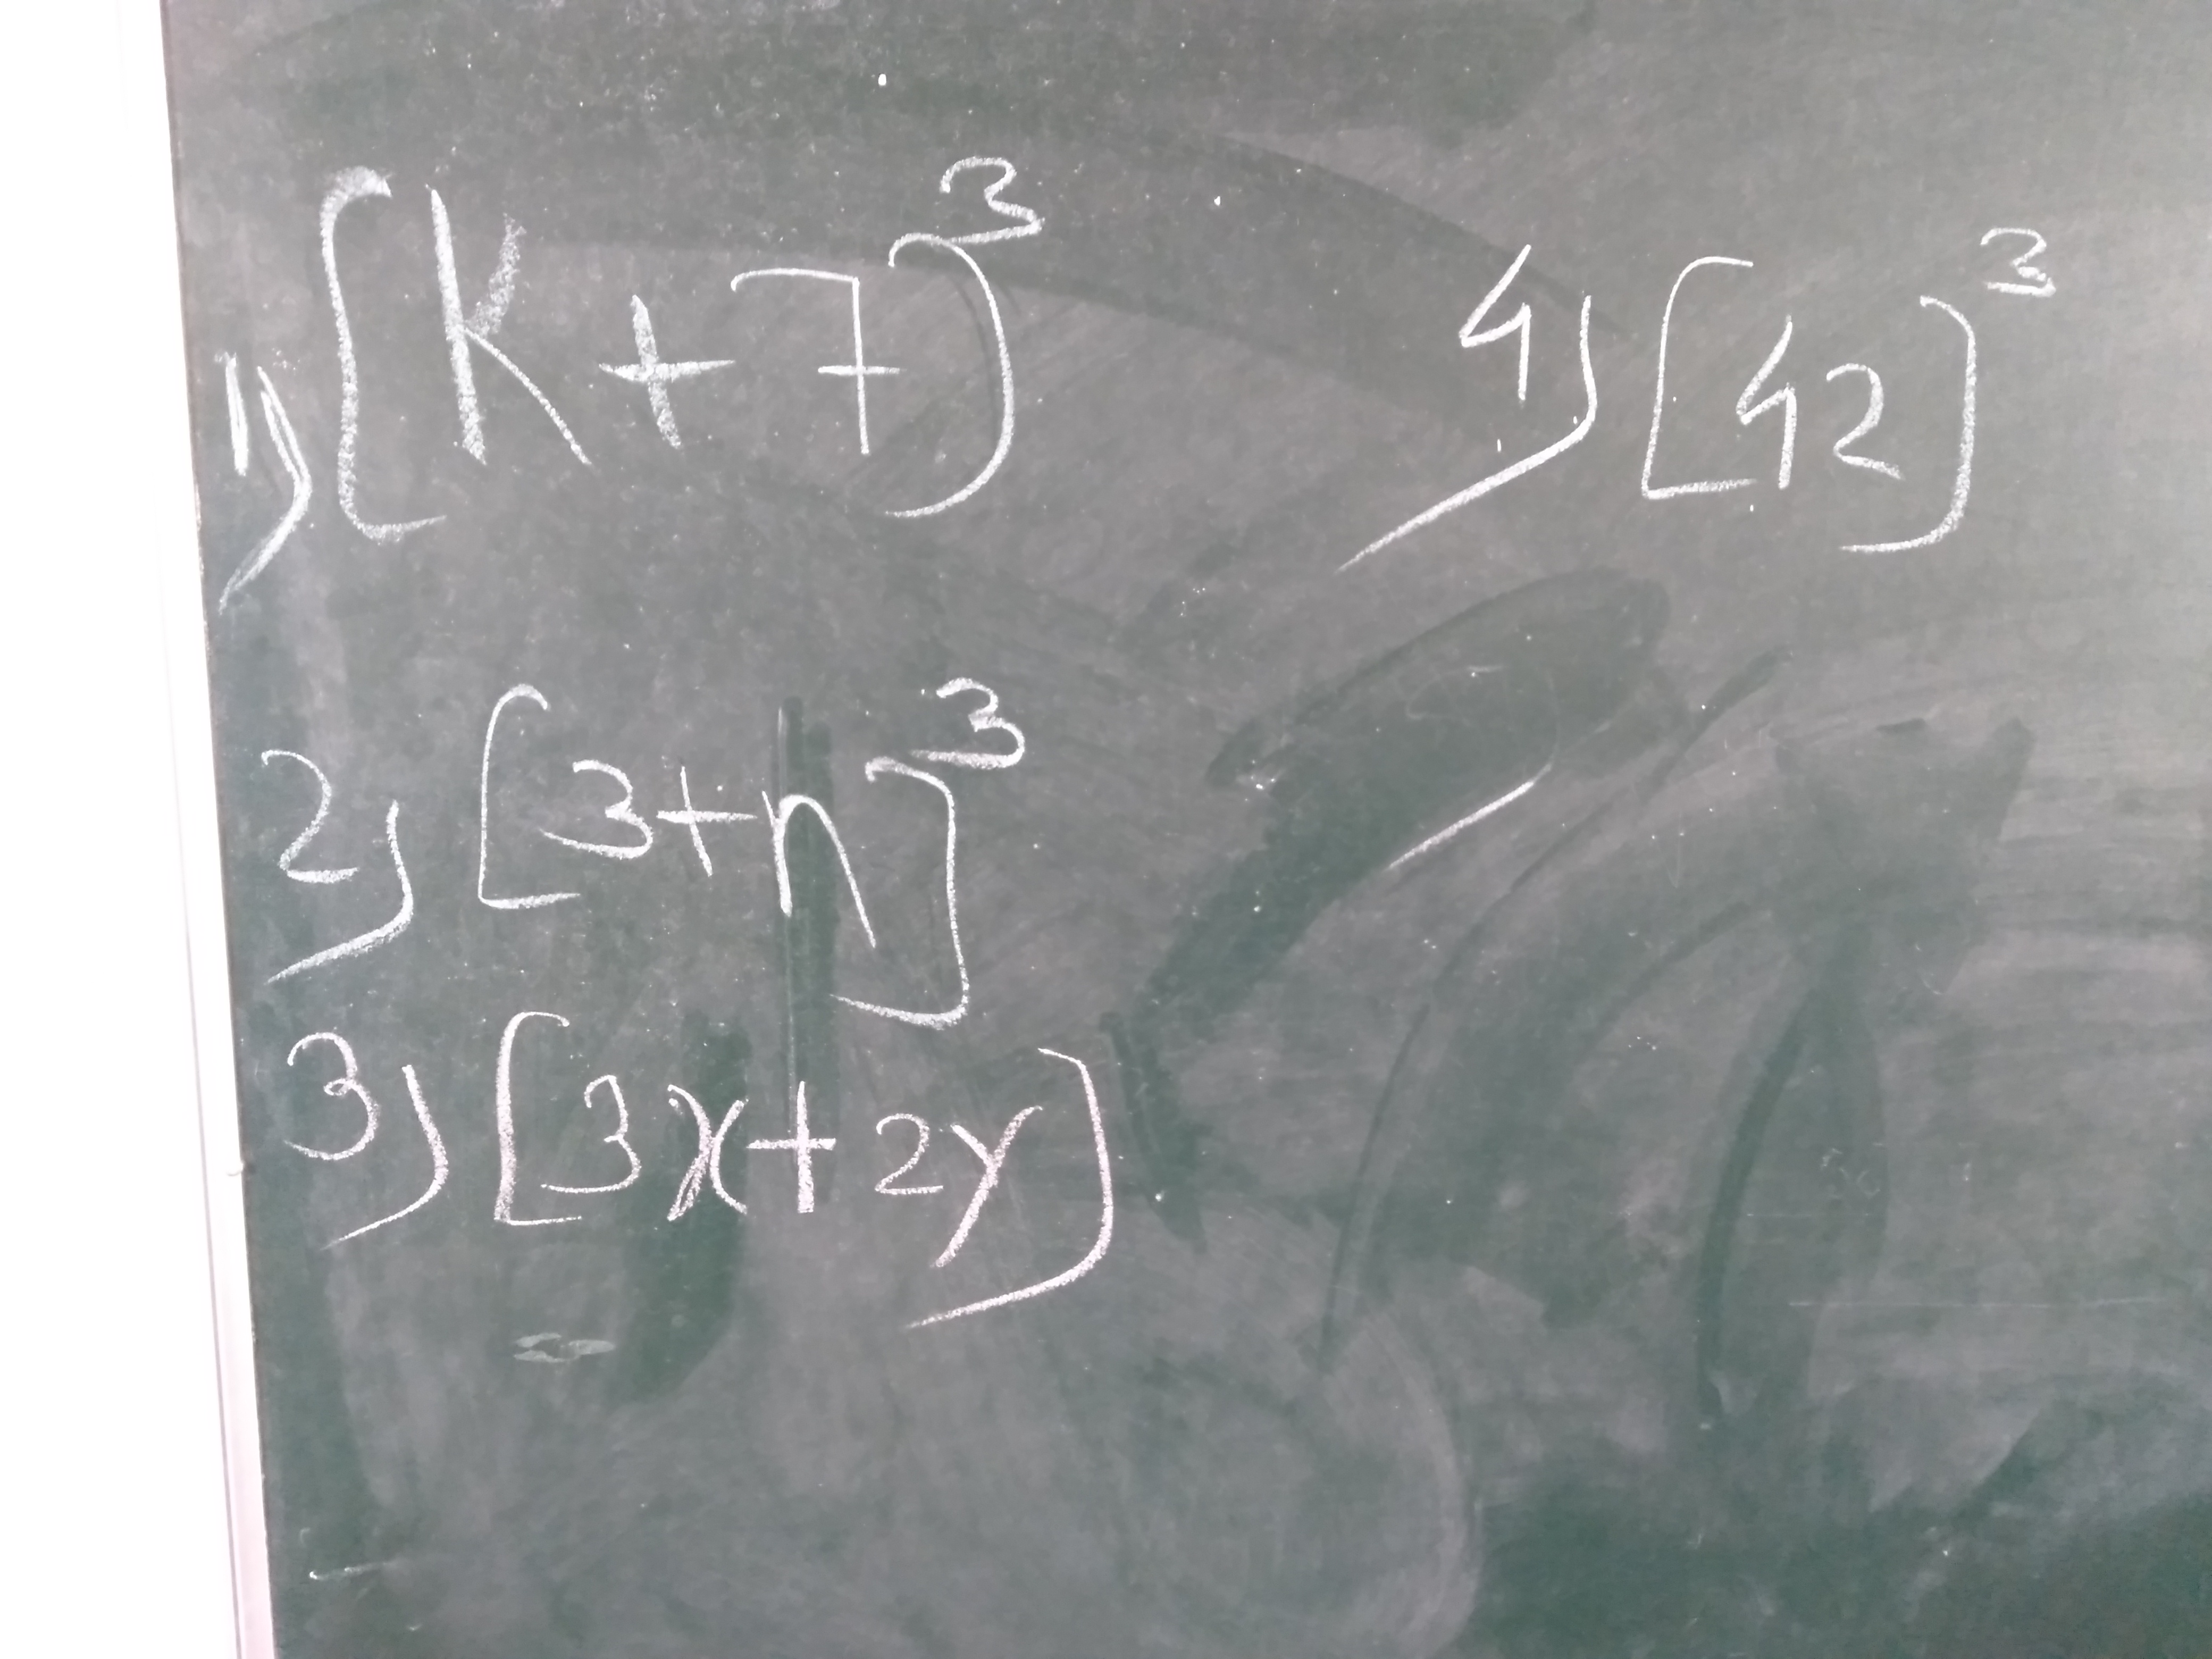 1) (k+7)³
2) [3+n]³
3) [3x+2y]
4) [42]³